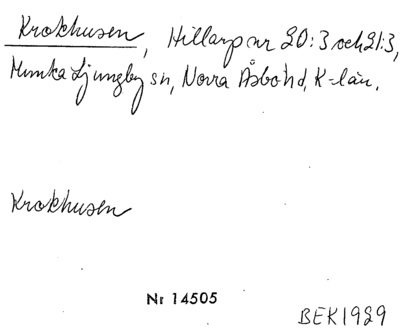 Krokhusen, Hillarp nr 20:3 och 21:3,
Munka Ljungby sn, Norra Åsbo hd, K-län.
Krokhusen
Nr 14505
BEK 1929